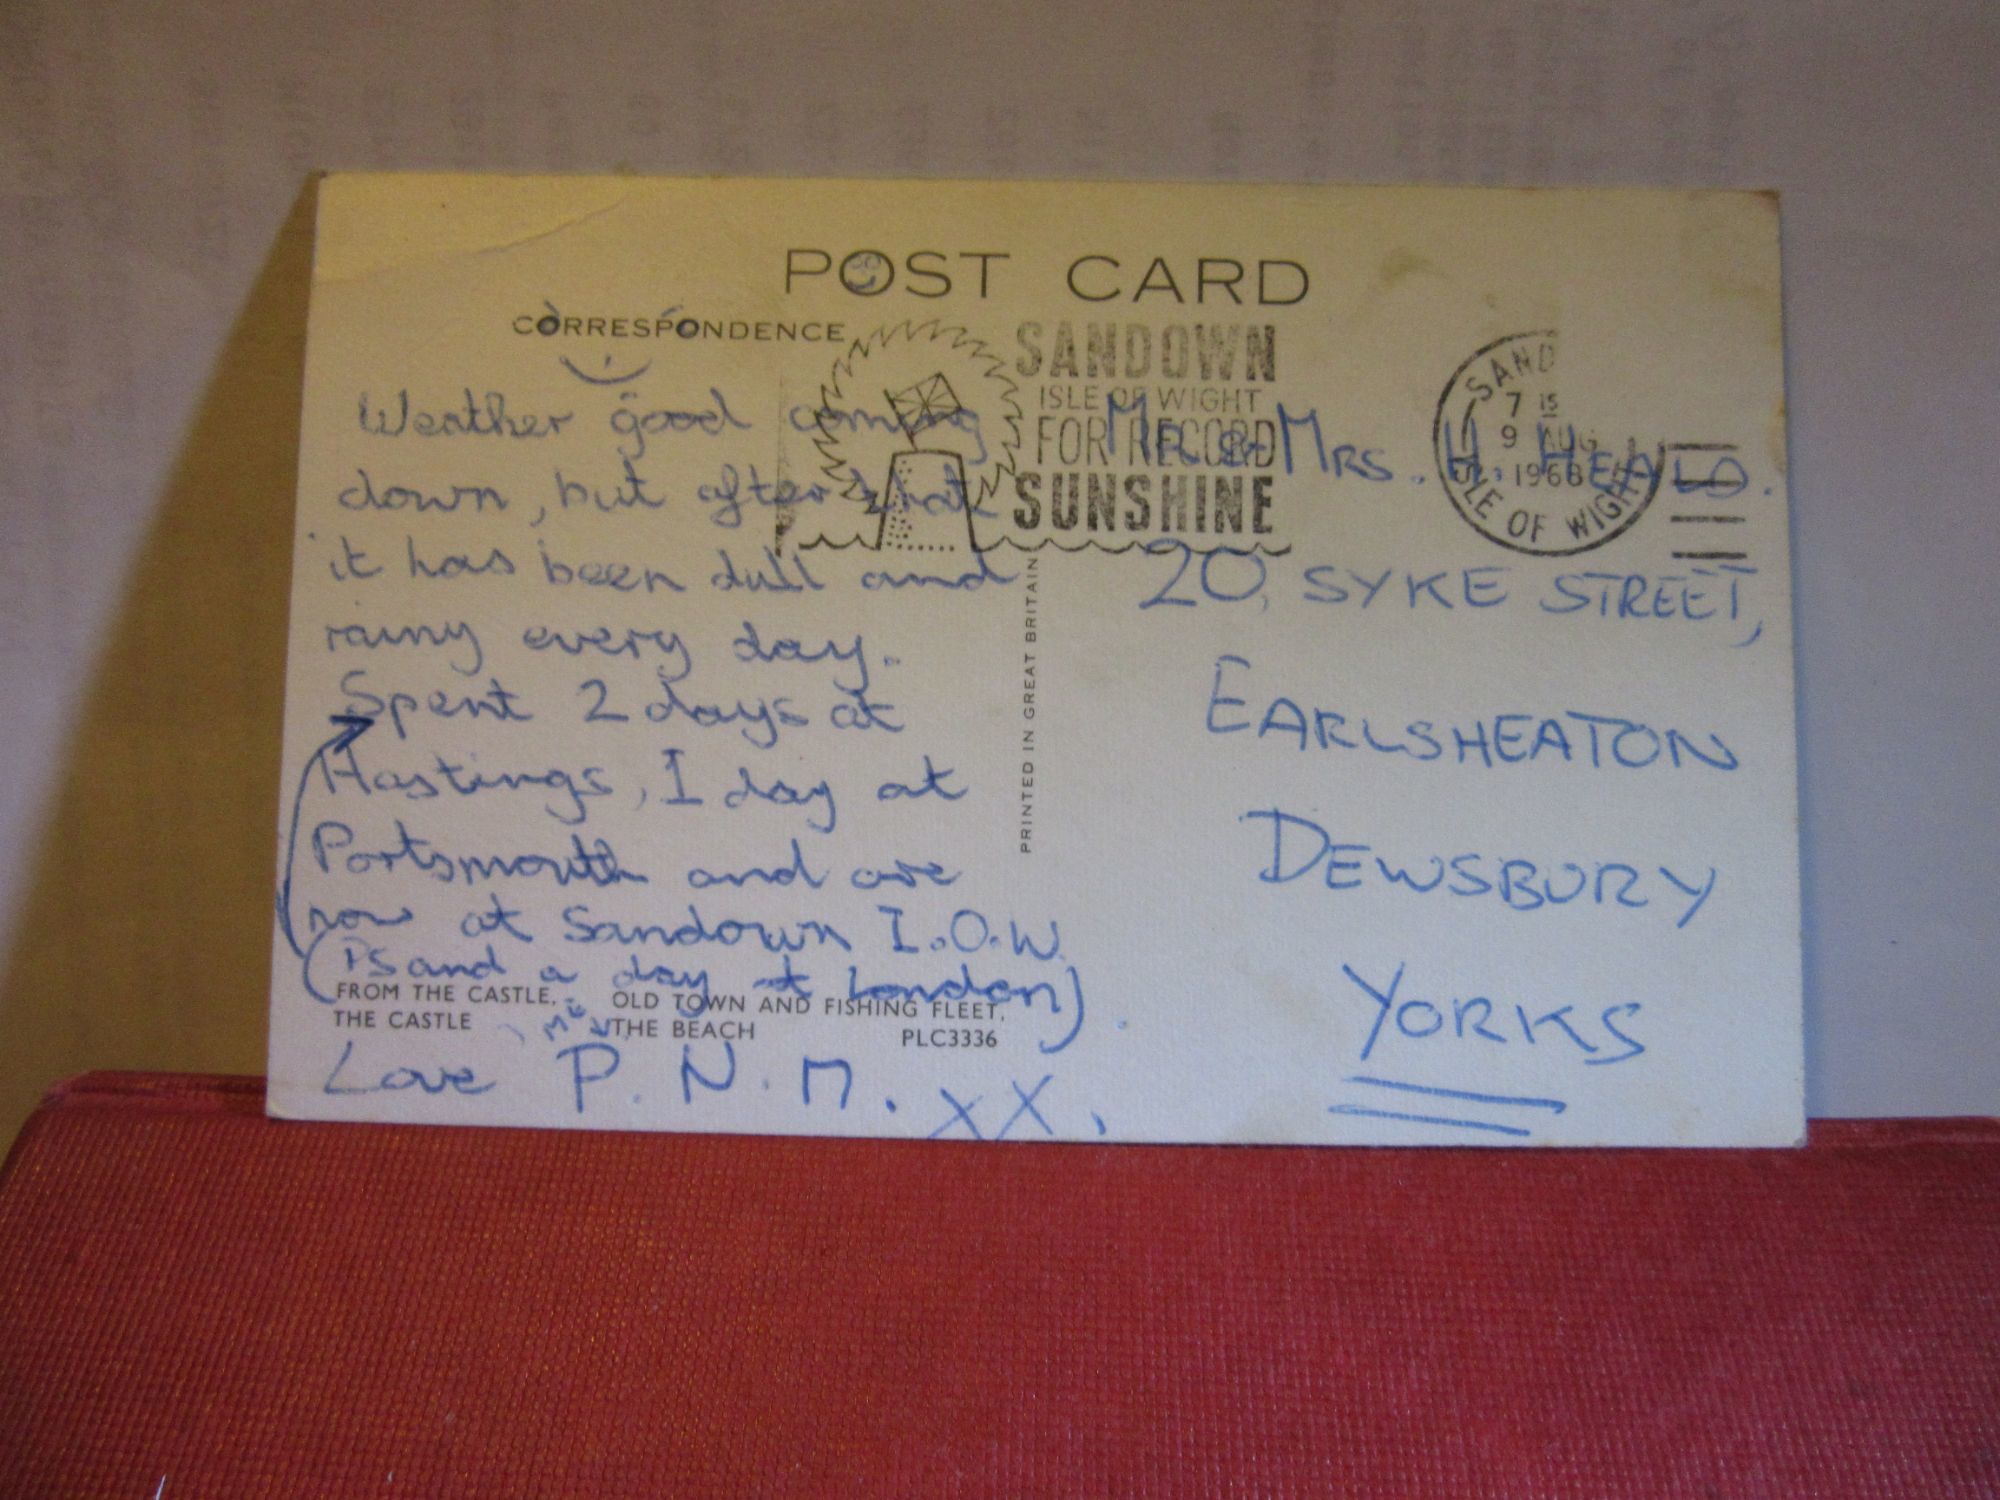 POST CARD
CORRESPONDENCE
SANDOWN
ISLE OF WIGHT
FOR RECORD
SUNSHINE
SAND
7 15
9 AUG
1968
ISLE OF WIGHT
Weather good coming
down, but after that
it has been dull and
rainy every day.
Spent 2 days at
Hastings, 1 day at
Portsmouth and are
now at Sandown I.O.W.
(PS and a day at London)
FROM THE CASTLE, OLD TOWN AND FISHING FLEET,
THE CASTLE THE BEACH PLC3336
Love P. N. M. XX.
PRINTED IN GREAT BRITAIN
MR & MRS. H HEALD.
20, SYKE STREET,
EARLSHEATON
DEWSBURY
YORKS